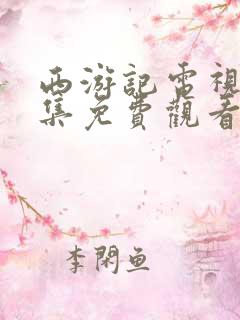 西游記電視
集免費觀看
李閑魚